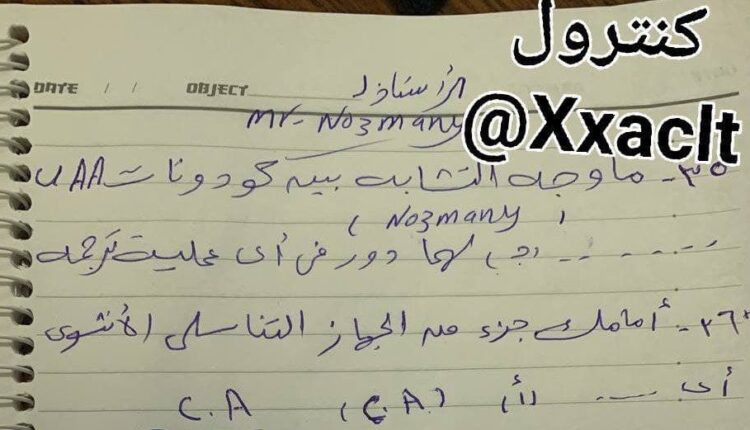 كنترول
@Xxaclt
DATE / / OBJECT
الأستاذ /
Mr- No3many
٣٥- ما وجه التشابه بين كودونات UAA
( No3many )
...... (ج) لها دور في أي عملية ترجمه
٣٦- أمامك جزء من الجهاز التناسلي الأنثوي
أي ..... (أ) (C.A) C.A